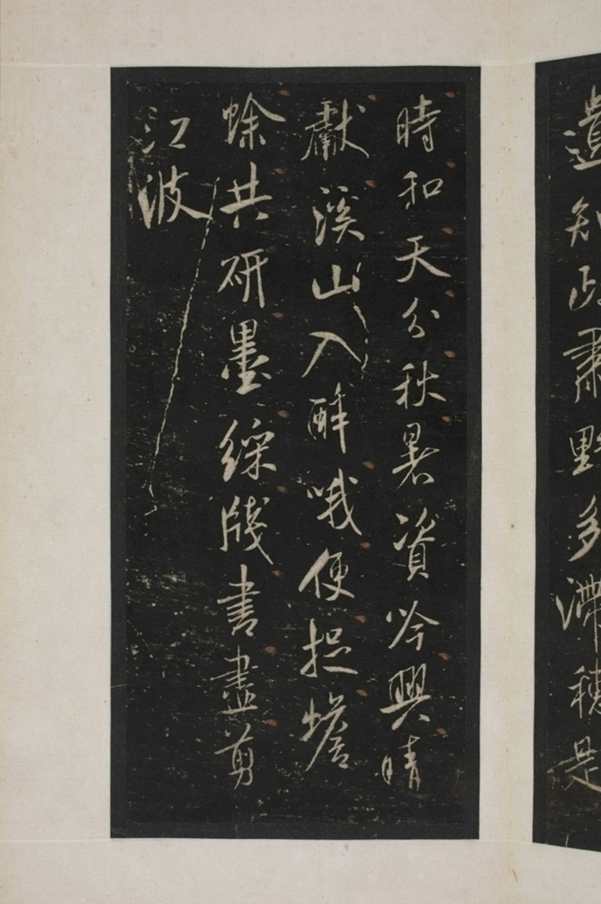 遺知政肅野多滯穗是
時和天分秋暑資吟興晴
獻溪山入醉哦便捉蟾
蜍共研墨綵牋書盡剪
江波